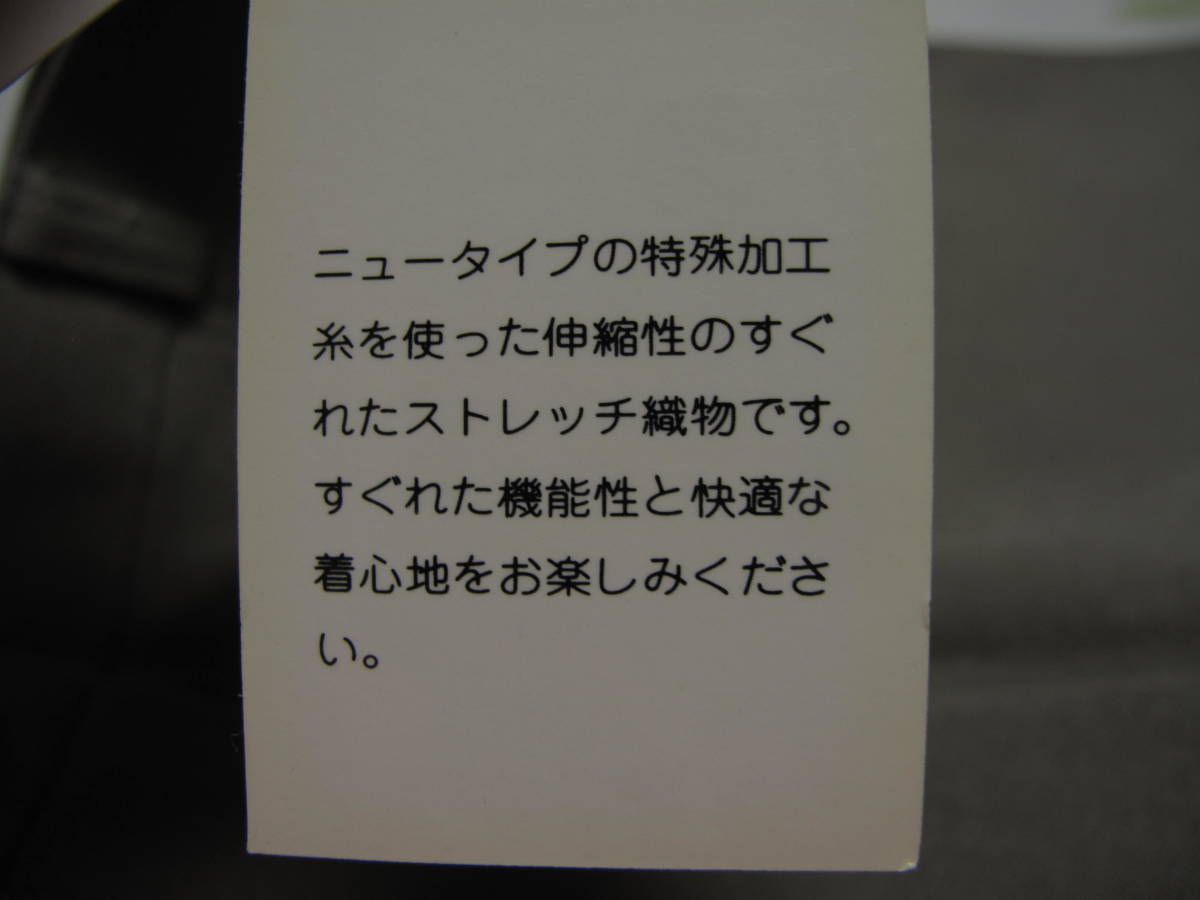 ニュータイプの特殊加工
糸を使った伸縮性のすぐ
れたストレッチ織物です。
すぐれた機能性と快適な
着心地をお楽しみくださ
い。